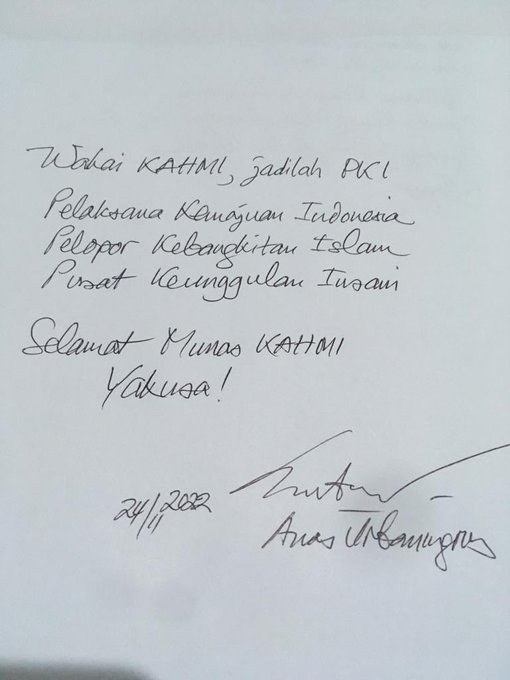 Wahai KAHMI, jadilah PKI
Pelaksana Kemajuan Indonesia
Pelopor Kebangkitan Islam
Pusat Keunggulan Insani
Selamat Munas KAHMI
Yakusa!
24/11 2022
Anas Urbaningrum